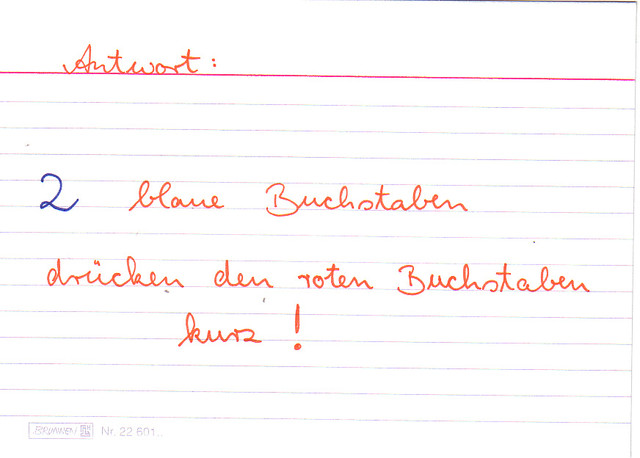 Antwort:
2 blaue Buchstaben
drücken den roten Buchstaben
kurz!
BRUNNEN Nr. 22 601